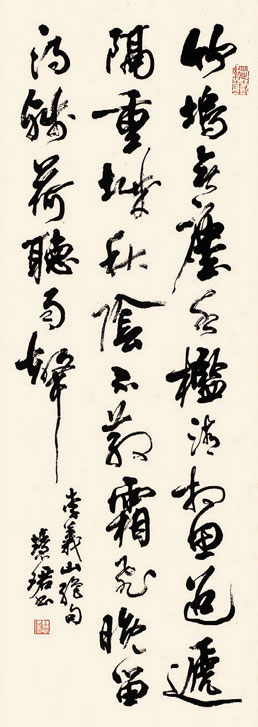 竹塢無塵水檻清相思迢遞
隔重城秋陰不散霜飛晚留
得殘荷聽雨聲
李義山絕句